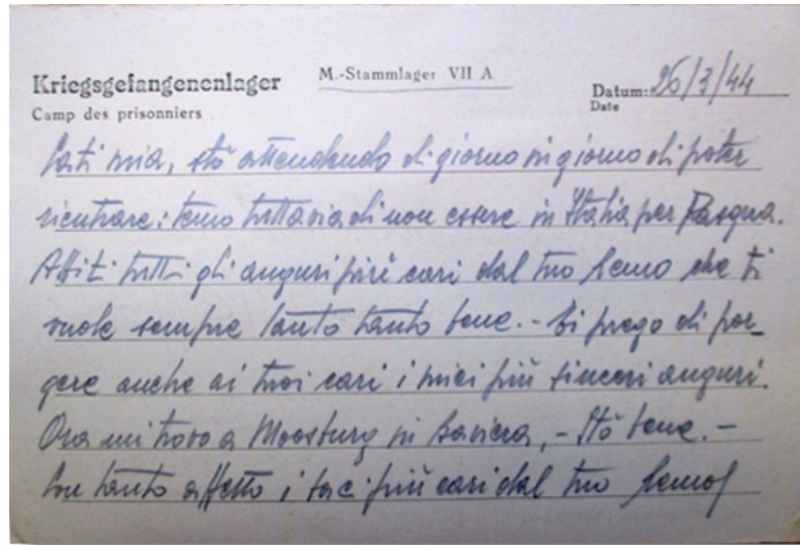 Kriegsgefangenenlager
M.-Stammlager VII A
Datum: 26/3/44
Camp des prisonniers
Date
mia, stò attendendo di giorno in giorno di poter
rientrare: temo tuttavia di non essere in Italia per Pasqua.
Abbiti tutti gli auguri più cari dal tuo Remo che ti
vuole sempre tanto tanto bene. - Ti prego di por_
gere anche ai tuoi cari i miei più sinceri auguri.
Ora mi trovo a Moosburg in Baviera, - Stò bene. -
Con tanto affetto i baci più cari dal tuo Remo